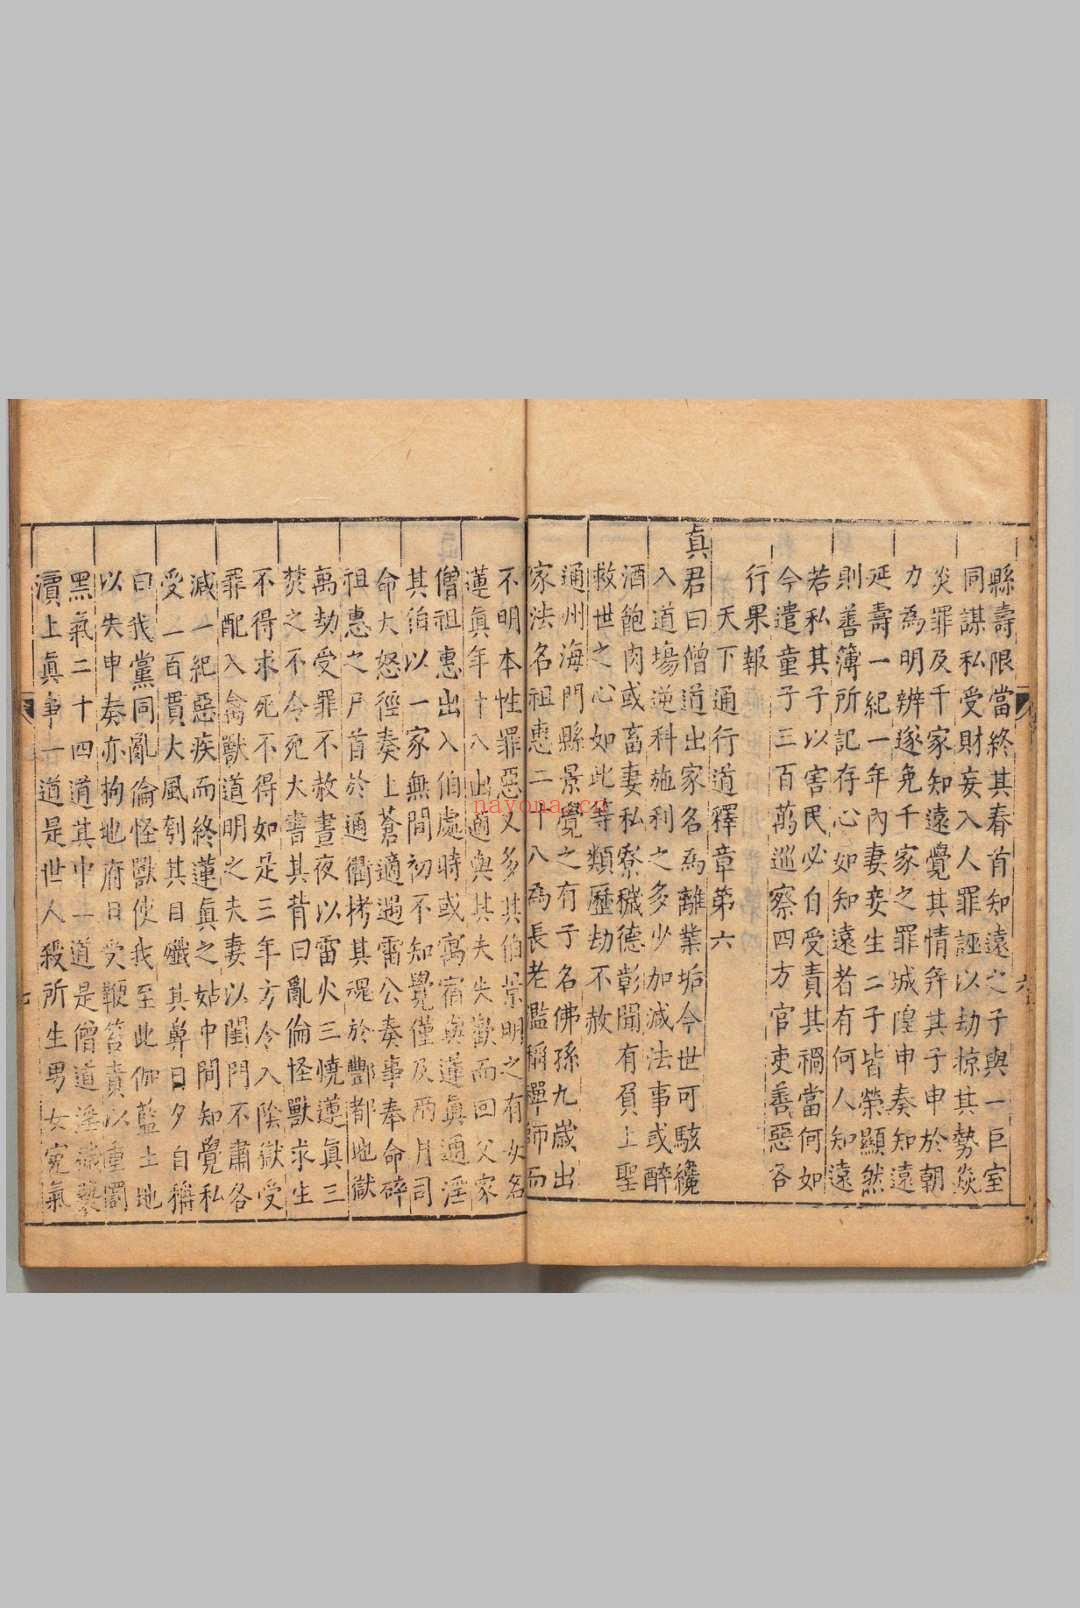 縣壽限當終其春首知遠之子與一巨室
同謀私受財妄入人罪誣以劫掠其勢焱
炎罪及千家知遠覺其情并其子申於朝
力為明辨遂免千家之罪城隍申奏知遠
延壽一紀一年內妻妾生二子皆榮顯然
則善簿所記存心如知遠者有何人知遠
若私其子以害民必自受責其禍當何如
今遣童子三百萬巡察四方官吏善惡各
行果報
天下通行道釋章第六
真君曰僧道出家名為離業垢今世可駭纔
入道場逆科施利之多少加減法事或醉
酒飽肉或畜妻私寮穢德彰聞有負上聖
救世之心如此等類歷劫不赦
通州海門縣景覺之有子名佛孫九歲出
家法名祖惠二十八為長老濫稱禪師而
六
不明本性罪惡又多其伯景明之有女名
蓮真年十八出適與其夫失歡而回父家
僧祖惠出入伯處時或寓宿與蓮真通淫
其伯以一家無間初不知覺僅及兩月司
命大怒徑奏上蒼適遇雷公奏事奉命碎
祖惠之尸首於通衢拷其魂於酆都地獄
萬劫受罪不赦晝夜以雷火三燒蓮真三
焚之不令死大書其背曰亂倫怪獸求生
不得求死不得如是三年方令入陰獄受
罪配入禽獸道明之夫妻以閨門不肅各
減一紀惡疾而終蓮真之姑中間知覺私
受一百貫大風刳其目殲其鼻日夕自稱
曰我黨同亂倫怪獸使我至此伽藍土地
以失申奏亦拘地府日受鞭笞責以重罰
黑氣二十四道其中一道是僧道淫穢褻
瀆上真事一道是世人殺所生男女冤氣
七
nayona.cn